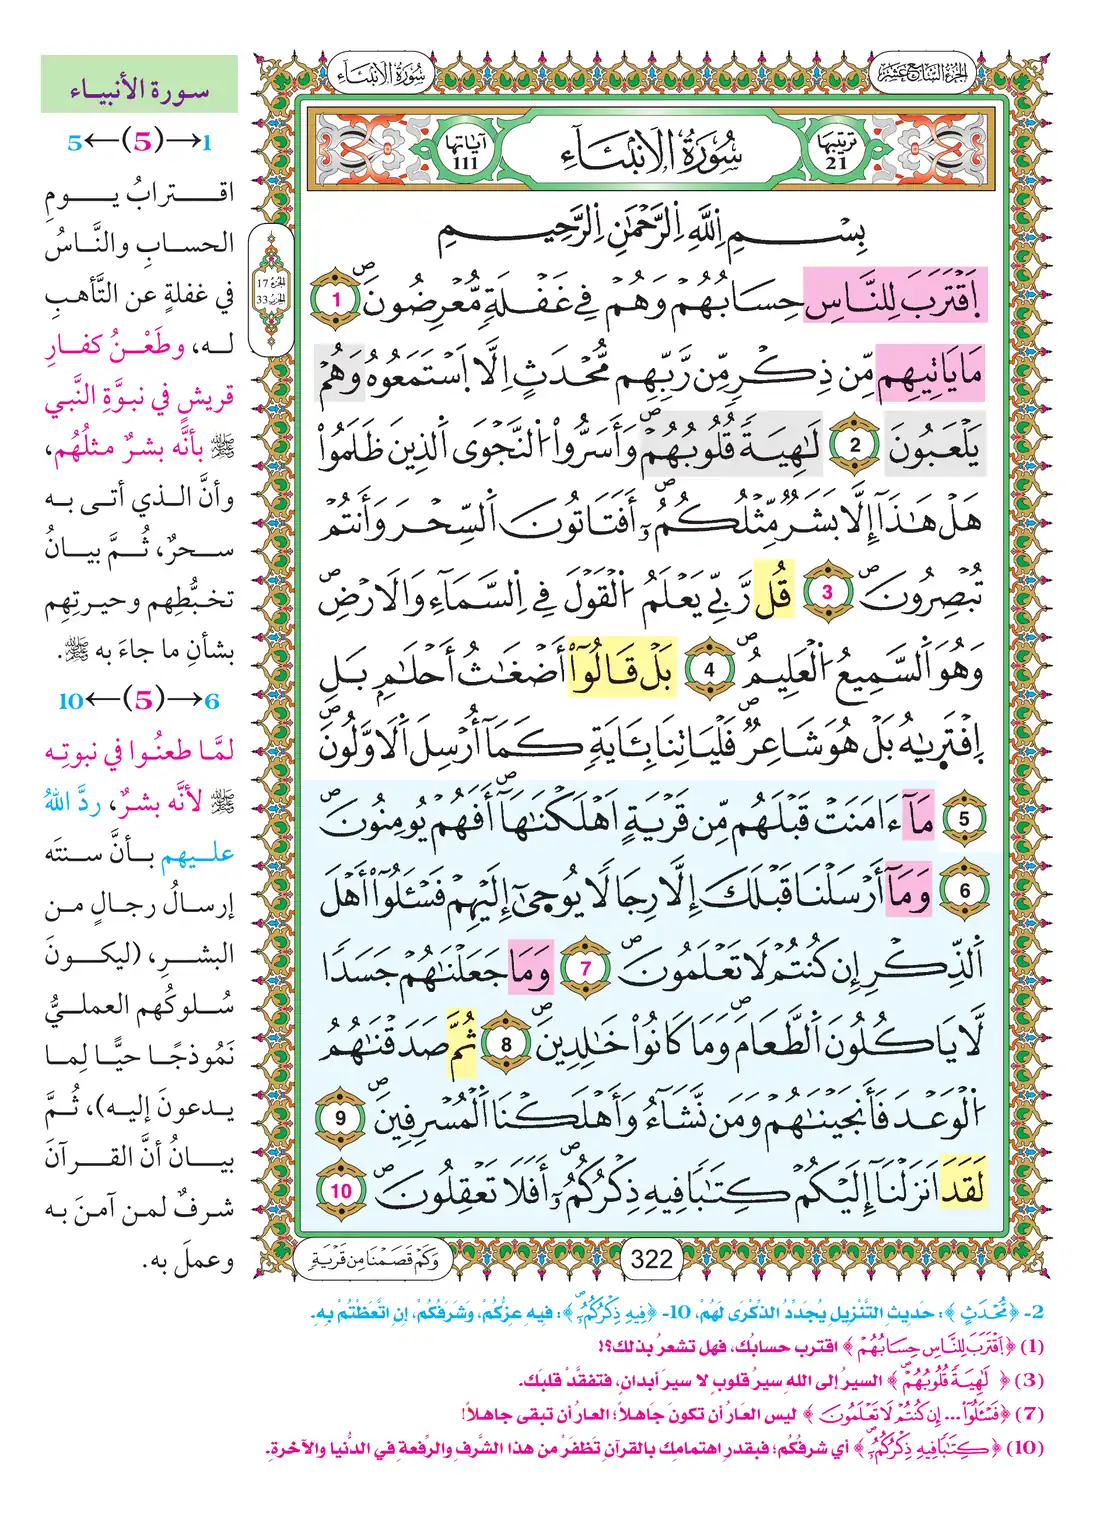 الجزء السابع عشر
سورة الأنبياء
ترتيبها 21
سُورَةُ الاَنۢبِيَاءِ
آياتها 111
بِسْمِ اِللَّهِ اِلرَّحْمَٰنِ اِلرَّحِيمِ
اَقْتَرَبَ لِلنَّاسِ حِسَابُهُمْ وَهُمْ فِي غَفْلَةٖ مُّعْرِضُونَۖ 1
مَا يَاتِيهِم مِّن ذِكْرٖ مِّن رَّبِّهِم مُّحْدَثٍ اِلَّا اَسْتَمَعُوهُ وَهُمْ
يَلْعَبُونَ 2 لَٰهِيَةٗ قُلُوبُهُمْۖ وَأَسَرُّواْ اُلنَّجْوَى اَلذِينَ ظَلَمُواْ
هَلْ هَٰذَآ إِلَّا بَشَرٞ مِّثْلُكُمُۥٓۖ أَفَتَاتُونَ اَلسِّحْرَ وَأَنتُمْ
تُبْصِرُونَۖ 3 قُل رَّبِّي يَعْلَمُ اُلْقَوْلَ فِي اِلسَّمَآءِ وَالَارْضِۖ
وَهُوَ اَلسَّمِيعُ اُلْعَلِيمُۖ 4 بَلْ قَالُوٓاْ أَضْغَٰثُ أَحْلَٰمِۢ بَلِ
اِفْتَر۪يٰهُ بَلْ هُوَ شَاعِرٞۖ فَلْيَاتِنَا بِـَٔايَةٖ كَمَآ أُرْسِلَ اَلَاوَّلُونَۖ
5 مَآ ءَامَنَتْ قَبْلَهُم مِّن قَرْيَةٍ اَهْلَكْنَٰهَآۖ أَفَهُمْ يُومِنُونَۖ
6 وَمَآ أَرْسَلْنَا قَبْلَكَ إِلَّا رِجَالاٗ يُوح۪يٰٓ إِلَيْهِمْ فَسْـَٔلُوٓاْ أَهْلَ
اَلذِّكْرِ إِن كُنتُمْ لَا تَعْلَمُونَۖ 7 وَمَا جَعَلْنَٰهُمْ جَسَداٗ
لَّا يَاكُلُونَ اَلطَّعَامَۖ وَمَا كَانُواْ خَٰلِدِينَۖ 8 ثُمَّ صَدَقْنَٰهُمُ
اُلْوَعْدَ فَأَنجَيْنَٰهُمْ وَمَن نَّشَآءُ وَأَهْلَكْنَا اَلْمُسْرِفِينَۖ 9
لَقَدَ اَنزَلْنَآ إِلَيْكُمْ كِتَٰباٗ فِيهِ ذِكْرُكُمُۥٓۖ أَفَلَا تَعْقِلُونَۖ 10
وَكَمْ قَصَمْنَا مِن قَرْيَةٖ
322
الجزء 17
الحزب 33
سورة الأنبياء
1→(5)←5
اقترابُ يومِ
الحسابِ والنَّاسُ
في غفلةٍ عن التَّأهبِ
له، وطَعْنُ كفارِ
قريشٍ في نبوَّةِ النَّبي
ﷺ بأنَّه بشرٌ مثلُهُم،
وأنَّ الذي أتى به
سحرٌ، ثُمَّ بيانُ
تخبُّطِهم وحيرتِهم
بشأنِ ما جاءَ به ﷺ.
6→(5)←10
لمَّا طعنُوا في نبوتِه
ﷺ لأنَّه بشرٌ، ردَّ اللهُ
عليهم بأنَّ سنتَه
إرسالُ رجالٍ من
البشرِ، (ليكونَ
سُلوكُهم العمليُّ
نَمُوذجًا حيًّا لِمَا
يدعونَ إليه)، ثُمَّ
بيانُ أنَّ القرآنَ
شرفٌ لمن آمنَ به
وعملَ به.
2- ﴿مُّحْدَثٍ﴾: حَدِيثِ التَّنْزِيلِ يُجَدِّدُ الذِّكْرَى لَهُمْ، 10- ﴿فِيهِ ذِكْرُكُمُۥٓۖ﴾: فيهِ عِزُّكُمْ، وَشَرَفُكُمْ، إنِ اتَّعَظْتُمْ بِهِ.
(1) ﴿اَقْتَرَبَ لِلنَّاسِ حِسَابُهُمْ﴾ اقترب حسابُك، فهل تشعرُ بذلك؟!
(3) ﴿لَٰهِيَةٗ قُلُوبُهُمْۖ﴾ السيرُ إلى اللهِ سيرُ قلوبٍ لا سيرَ أبدانٍ، فتفقَّدْ قلبَك.
(7) ﴿فَسْـَٔلُوٓاْ ... إِن كُنتُمْ لَا تَعْلَمُونَ﴾ ليس العارُ أن تكونَ جَاهلاً؛ العارُ أن تبقى جاهلاً!
(10) ﴿كِتَٰباٗ فِيهِ ذِكْرُكُمُۥٓۖ﴾ أي شرفُكُم؛ فبقدرِ اهتمامِك بالقرآنِ تَظفَرْ من هذا الشَّرفِ والرِّفعةِ في الدُّنيا والآخرةِ.